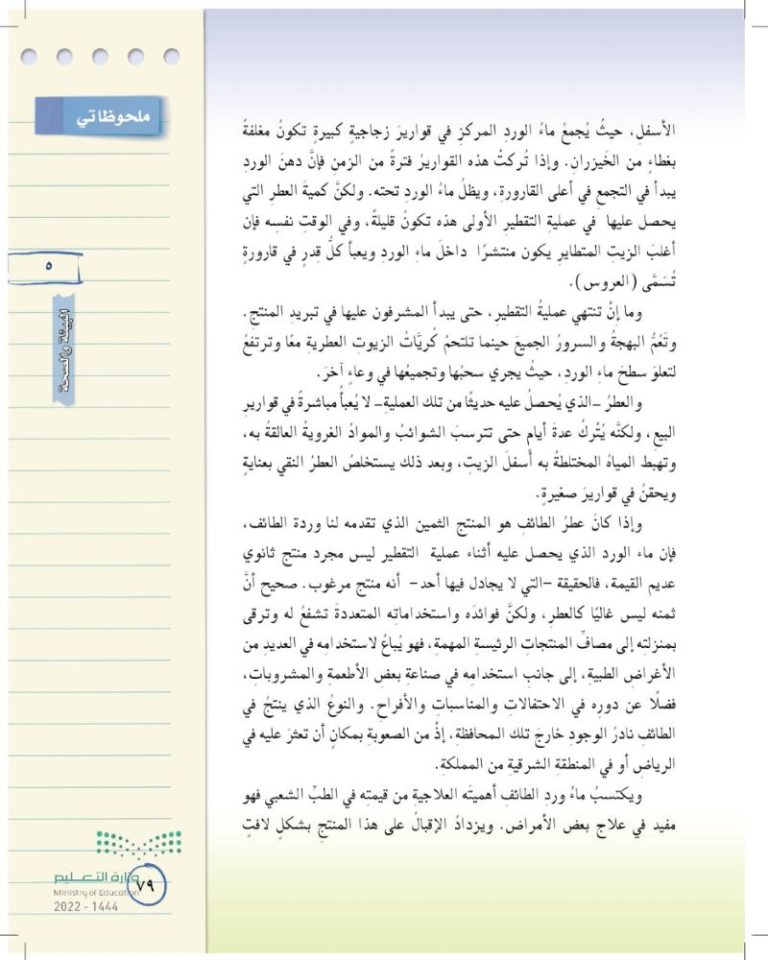 الأسفلِ، حيثُ يُجمعُ ماءُ الوردِ المركزِ في قواريرَ زجاجيةٍ كبيرةٍ تكونُ مغلفةً
بغطاءٍ من الخَيزرانِ. وإذا تُركتْ هذه القواريرُ فترةً من الزمنِ فإنَّ دهنَ الوردِ
يبدأ في التجمعِ في أعلى القارورةِ، ويظلُ ماءُ الوردِ تحته. ولكنَّ كميةَ العطرِ التي
يحصل عليها في عمليةِ التقطيرِ الأولى هذه تكونُ قليلةً، وفي الوقتِ نفسِه فإن
أغلبَ الزيتِ المتطايرِ يكون منتشرًا داخلَ ماءِ الوردِ ويعبأ كلُّ قِدرٍ في قارورةٍ
تُسَمَّى (العروس).
وما إنْ تنتهي عمليةُ التقطيرِ، حتى يبدأ المشرفون عليها في تبريدِ المنتجِ.
وتَعُمُّ البهجةُ والسرورُ الجميعَ حينما تلتحمُ كُريَّاتُ الزيوتِ العطريةِ معًا وترتفعُ
لتعلوَ سطحَ ماءِ الوردِ، حيثُ يجري سحبُها وتجميعُها في وعاءٍ آخرَ.
والعطرُ –الذي يُحصلُ عليه حديثًا من تلك العمليةِ– لا يُعبأُ مباشرةً في قواريرِ
البيعِ، ولكنَّه يُتْركُ عدةَ أيامٍ حتى تترسبَ الشوائبُ والموادُ الغرويةُ العالقةُ به،
وتهبط المياهُ المختلطةُ به أسفلَ الزيتِ، وبعد ذلك يستخلصُ العطرُ النقي بعنايةٍ
ويحقنُ في قواريرَ صغيرةٍ.
وإذا كانَ عطرُ الطائفِ هو المنتج الثمين الذي تقدمه لنا وردة الطائف،
فإن ماء الورد الذي يحصل عليه أثناء عملية التقطير ليس مجرد منتج ثانوي
عديم القيمة، فالحقيقة –التي لا يجادل فيها أحد– أنه منتج مرغوب. صحيح أنَّ
ثمنه ليس غاليًا كالعطرِ، ولكنَّ فوائدَه واستخداماتِه المتعددةَ تشفعُ له وترقى
بمنزلته إلى مصافِّ المنتجاتِ الرئيسةِ المهمةِ، فهو يُباعُ لاستخدامِه في العديد من
الأغراضِ الطبيةِ، إلى جانبِ استخدامِه في صناعةِ بعضِ الأطعمةِ والمشروباتِ،
فضلًا عن دورِه في الاحتفالاتِ والمناسباتِ والأفراحِ. والنوعُ الذي ينتجُ في
الطائفِ نادرُ الوجودِ خارجَ تلك المحافظةِ، إذْ من الصعوبةِ بمكانٍ أن تعثرَ عليه في
الرياضِ أو في المنطقةِ الشرقيةِ من المملكةِ.
ويكتسبُ ماءُ وردِ الطائفِ أهميتَه العلاجيةِ من قيمتِه في الطبِّ الشعبي فهو
مفيد في علاجِ بعضِ الأمراضِ. ويزدادُ الإقبالُ على هذا المنتجِ بشكلٍ لافتٍ
ملحوظاتي
٥
البيئة والصحة
وزارة التعليم
Ministry of Education
2022 - 1444
٧٩